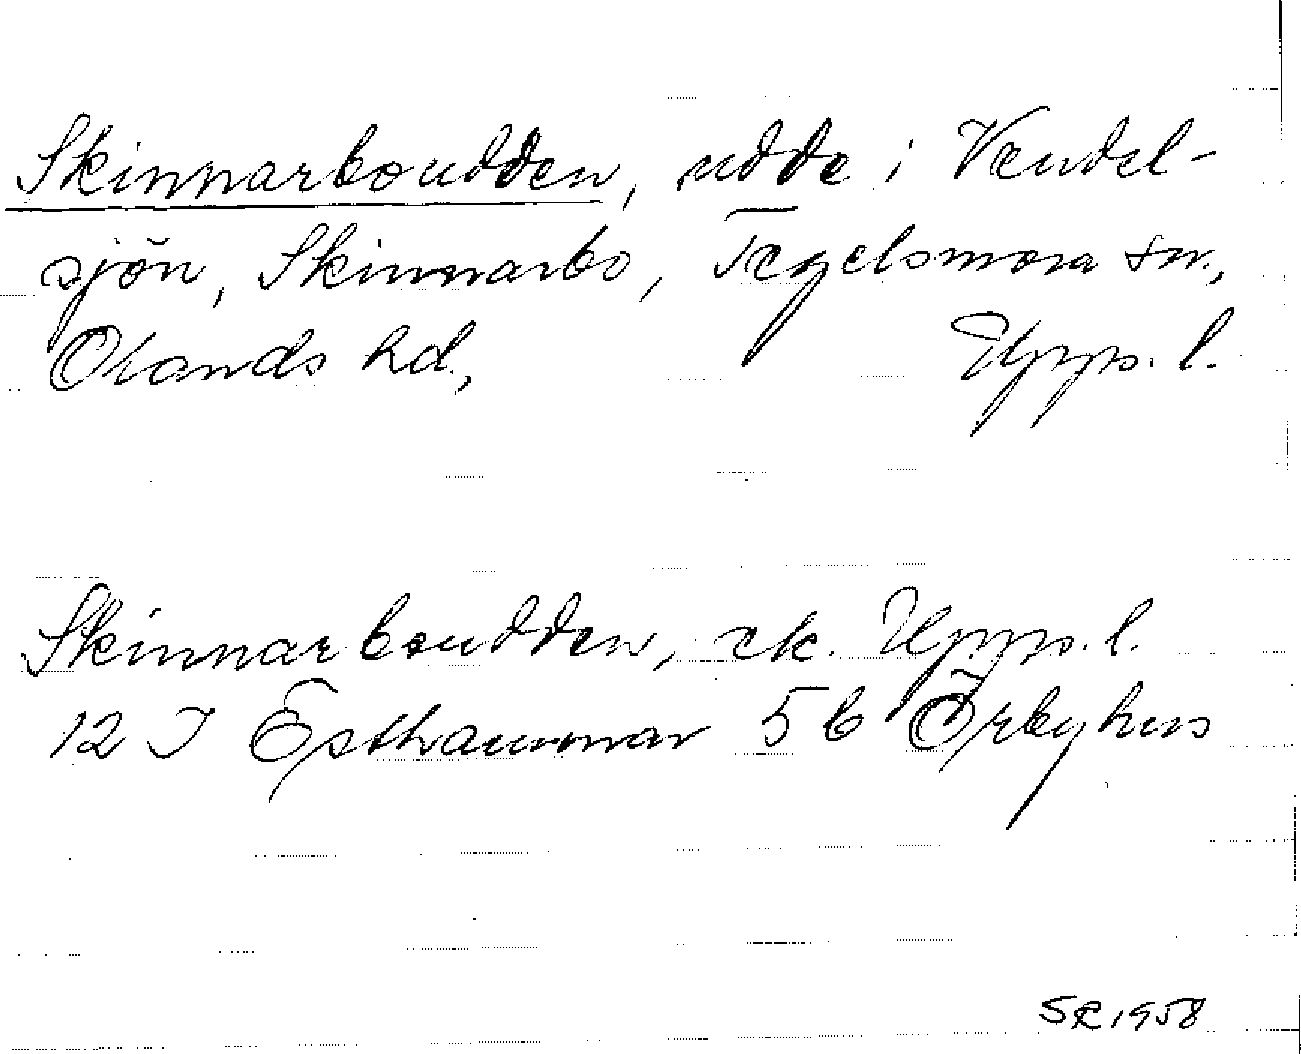 Skinnarboudden, udde i Vendel-
sjön, Skinnarbo, Tegelsmora sn.,
Olands hd., Upps. l.
Skinnarboudden, ek. Upps. l.
12 I Östhammar 5 b Örbyhus
SR 1958